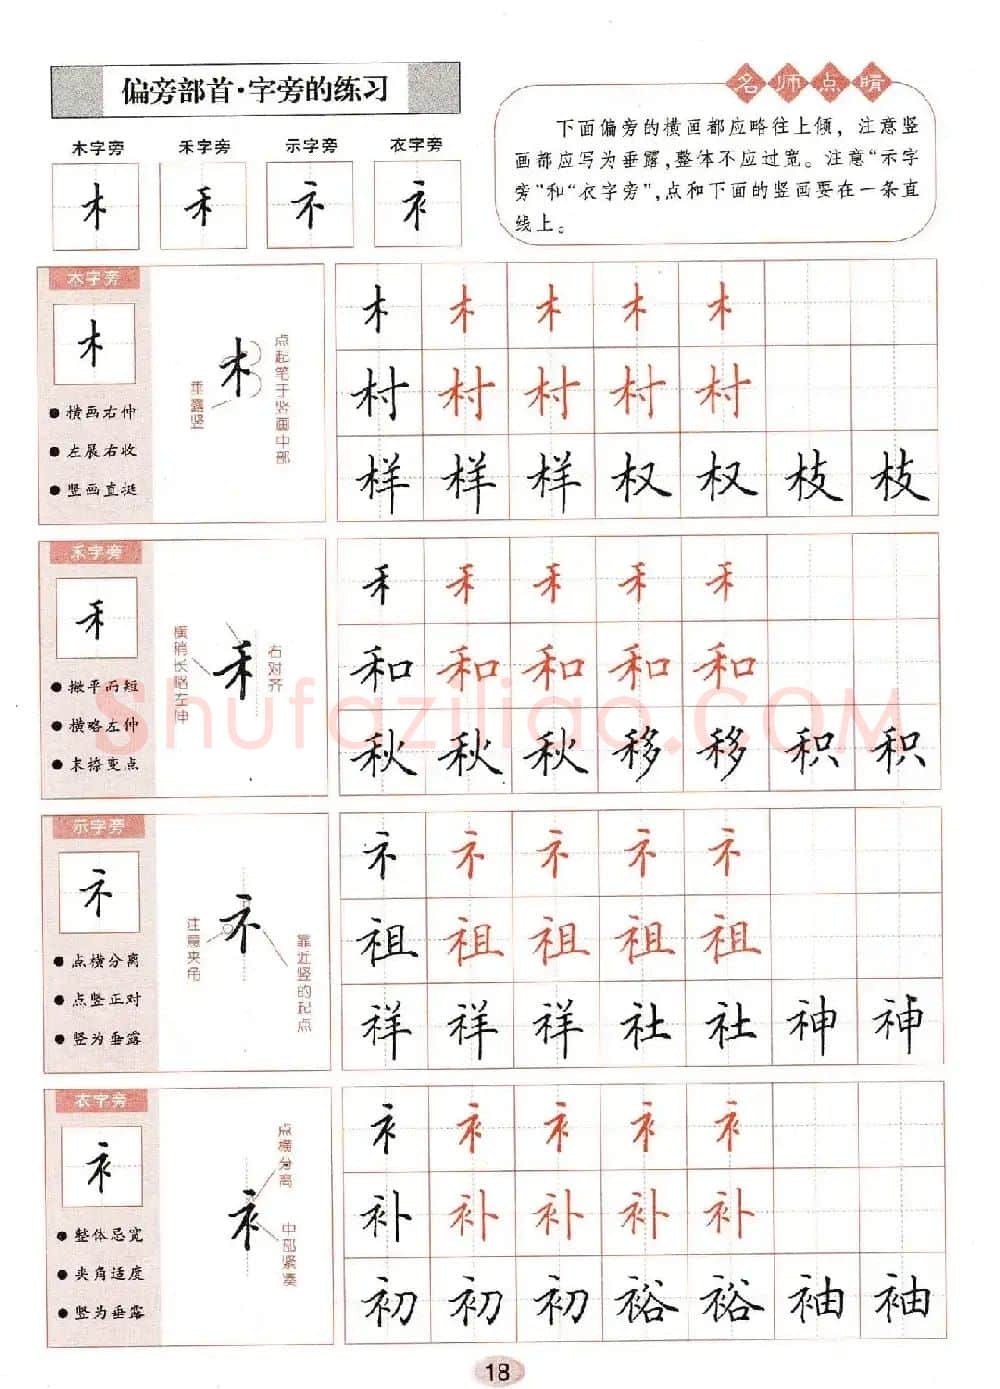 偏旁部首·字旁的练习
名师点晴
木字旁 禾字旁 示字旁 衣字旁
木 禾 礻 衤
下面偏旁的横画都应略往上倾，注意竖
画都应写为垂露，整体不应过宽。注意“示字
旁”和“衣字旁”，点和下面的竖画要在一条直
线上。
木字旁
木
● 横画右伸
● 左展右收
● 竖画直挺
木
垂露竖
点起笔于竖画中部
木 木 木 木 木
村 村 村 村 村
样 样 样 权 权 枝 枝
禾字旁
禾
● 撇平而短
● 横略左伸
● 末捺变点
禾
横稍长略左伸
右对齐
禾 禾 禾 禾 禾
和 和 和 和 和
秋 秋 秋 移 移 积 积
Shufaziliao.COM
示字旁
礻
● 点横分离
● 点竖正对
● 竖为垂露
礻
注意夹角
靠近竖的起点
礻 礻 礻 礻 礻
祖 祖 祖 祖 祖
祥 祥 祥 社 社 神 神
衣字旁
衤
● 整体忌宽
● 夹角适度
● 竖为垂露
衤
点横分离
中部紧凑
衤 衤 衤 衤 衤
补 补 补 补 补
初 初 初 裕 裕 袖 袖
18